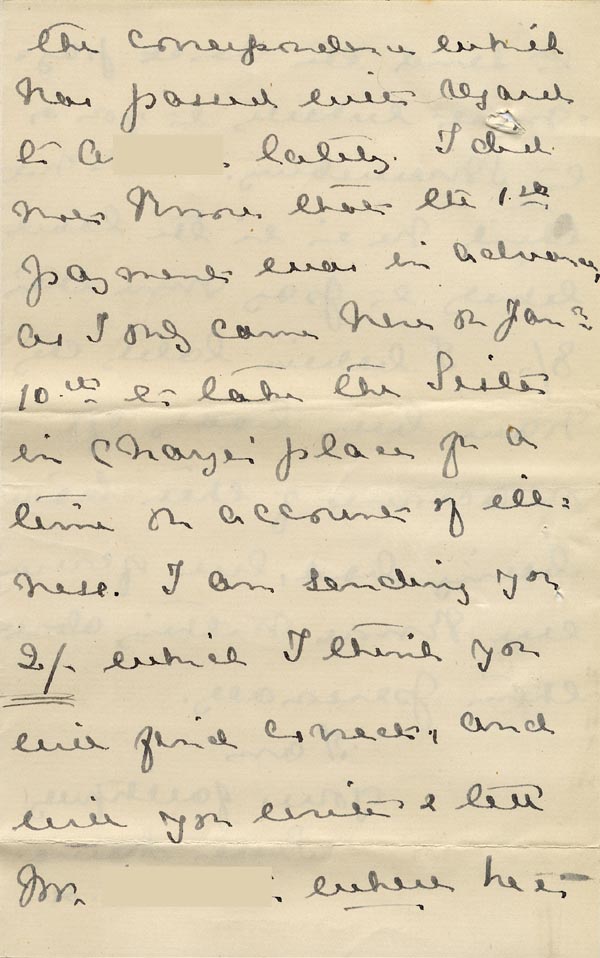 the correspondence which
has passed with regard
to A . lately. I did
not know that the 1st
payment was in advance,
as I only came here on Jany
10th to take the Sister
in Charge's place for a
time on account of ill=
ness. I am sending you
2/- which I think you
will find correct, and
will you write & tell
Mr. . where he is